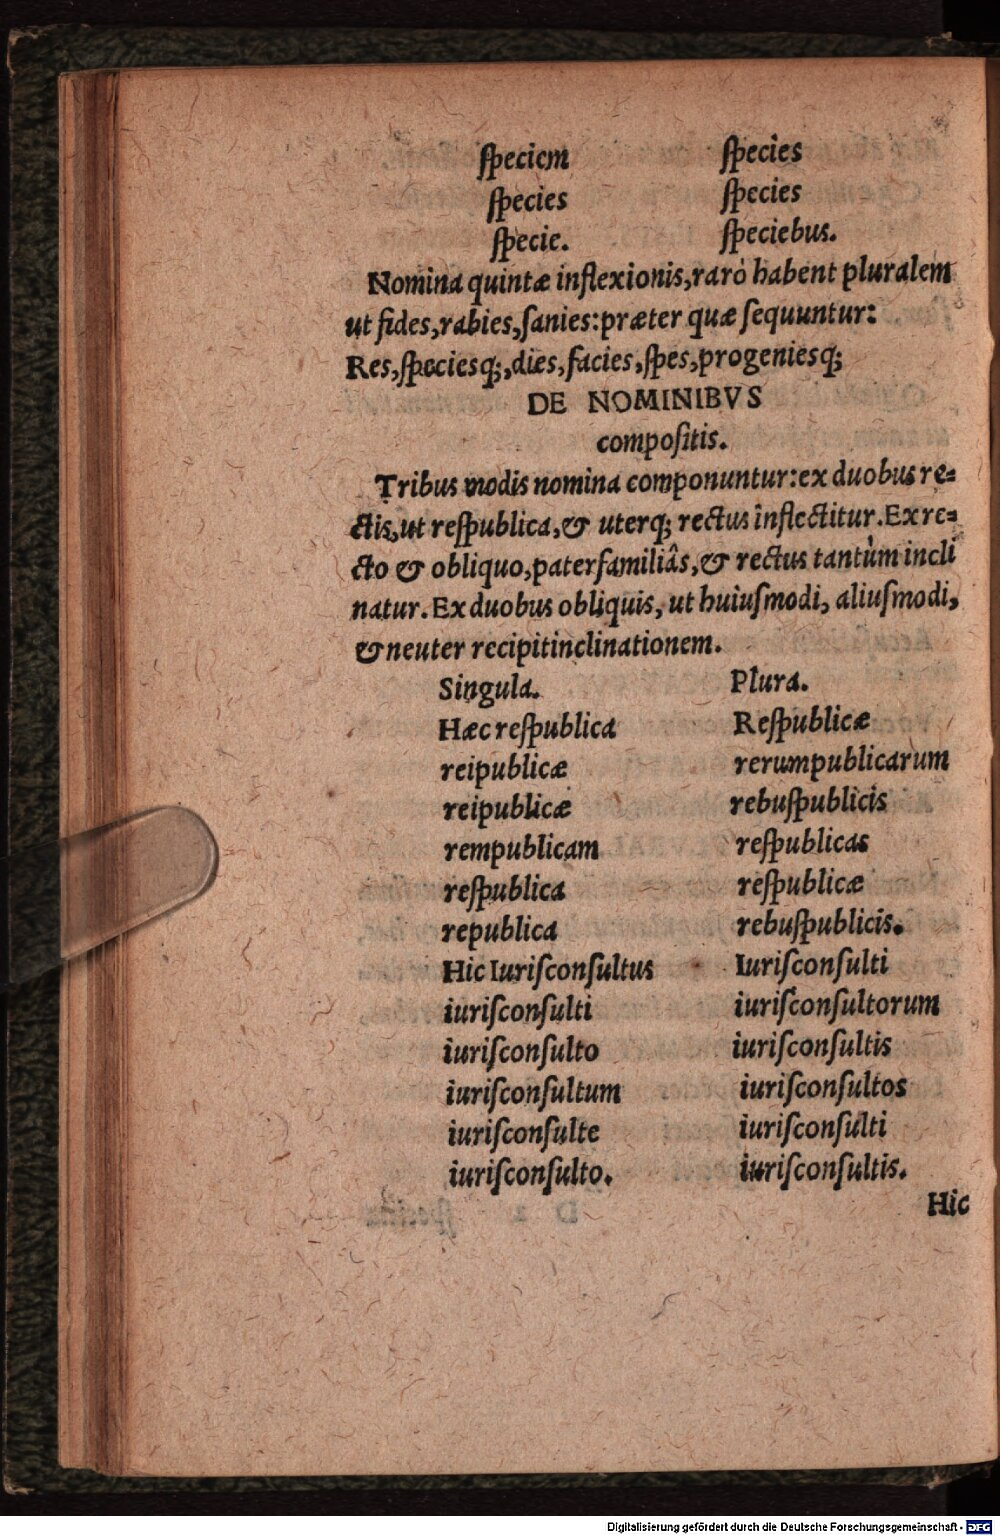 ſpeciem ſpecies
ſpecies ſpecies
ſpecie. ſpeciebus.
Nomina quintæ inflexionis,rarò habent pluralem
ut fides,rabies,ſanies:præter quæ ſequuntur:
Res,ſpeciesq;,dies,facies,ſpes,progeniesq;
DE NOMINIBVS
compoſitis.
Tribus modis nomina componuntur:ex duobus re⸗
ctis,ut reſpublica,& uterq; rectus inflectitur.Ex re⸗
cto & obliquo,paterfamiliâs,& rectus tantùm incli
natur.Ex duobus obliquis, ut huiuſmodi, aliuſmodi,
& neuter recipit inclinationem.
Singula. Plura.
Hæc reſpublica Reſpublicæ
reipublicæ rerumpublicarum
reipublicæ rebuſpublicis
rempublicam reſpublicas
reſpublica reſpublicæ
republica rebuſpublicis.
Hic Iuriſconſultus Iuriſconſulti
iuriſconſulti iuriſconſultorum
iuriſconſulto iuriſconſultis
iuriſconſultum iuriſconſultos
iuriſconſulte iuriſconſulti
iuriſconſulto. iuriſconſultis.
Hic
Digitalisierung gefördert durch die Deutsche Forschungsgemeinschaft - DFG